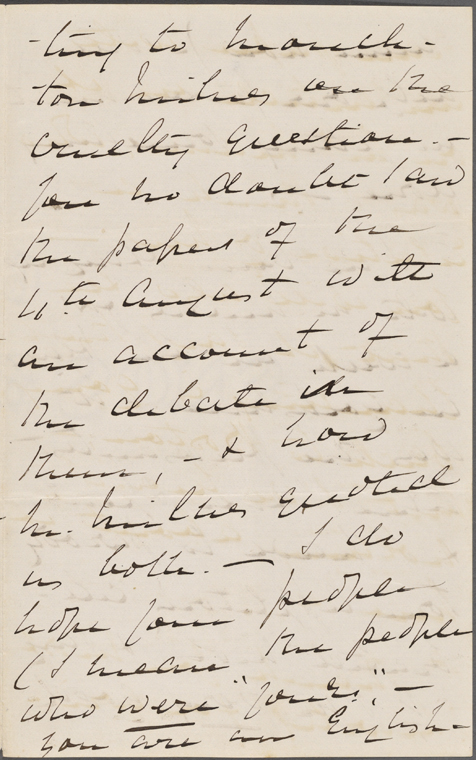 -ting to Monck-
ton Milnes on the
cruelty question. -
You no doubt saw
the papers of the
4th August with
an account of
the debate in
them, - & how
Mr. Milnes quoted
us both. - I do
hope your people
(I mean the people
who were "yours", -
you are an English-